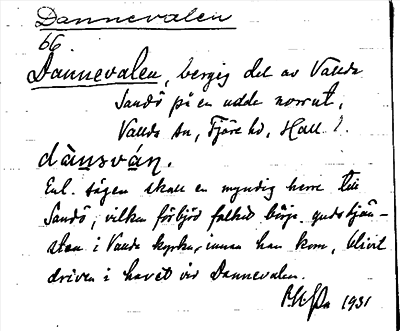 Dannevalen
66
Dannevalen, bergig del av Vallda
Sandö på en udde norrut,
Vallda sn, Fjäre hd, Hall. l.
dànsván.
Enl. sägen skall en myndig herre till
Sandö, vilken förbjöd folket börja gudstjän-
sten i Vallda kyrka, innan han kom, blivit
driven i havet vid Dannevalen.
1931